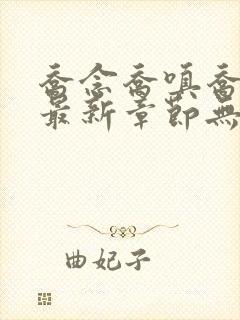 喬念喬嗔喬
最新章節無
曲妃子